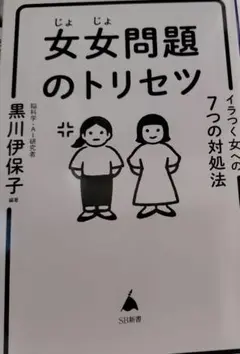 じょ じょ
女女問題
のトリセツ
イラつく女への
7つの対処法
脳科学・AI研究者
黒川伊保子
編著
SB新書